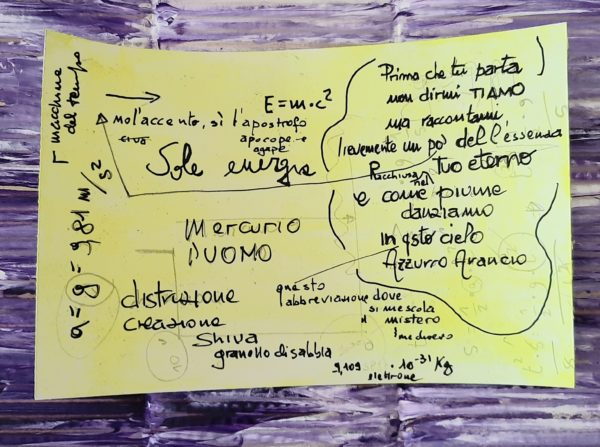 macchina
del tempo
E=m·c²
mo l'accento, sì l'apostrofo
apocope e
agape
Sole energia
a=g=9,81 m/s²
Mercurio
DUOMO
distruzione
creazione
Shiva
granello di sabbia
Prima che tu parta
non dirmi TIAMO
ma raccontami
lievemente un po' dell'essenza
Racchiusa nel tuo eterno
e come piume
danziamo
in qsto cielo
Azzurro Arancio
questo
abbreviazione dove
si mescola
il mistero
9,109 · 10⁻³¹ Kg
elettrone